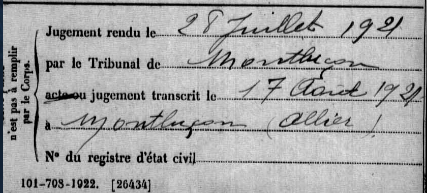 n'est pas à remplir
par le Corps.
Jugement rendu le 28 Juillet 1921
par le Tribunal de Montluçon
acte ou jugement transcrit le 17 Août 1921
à Montluçon (Allier)
N° du registre d'état civil
101-708-1922. [26434]